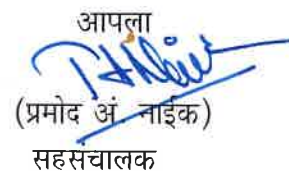 आपला
(प्रमोद अं. नाईक)
सहसंचालक